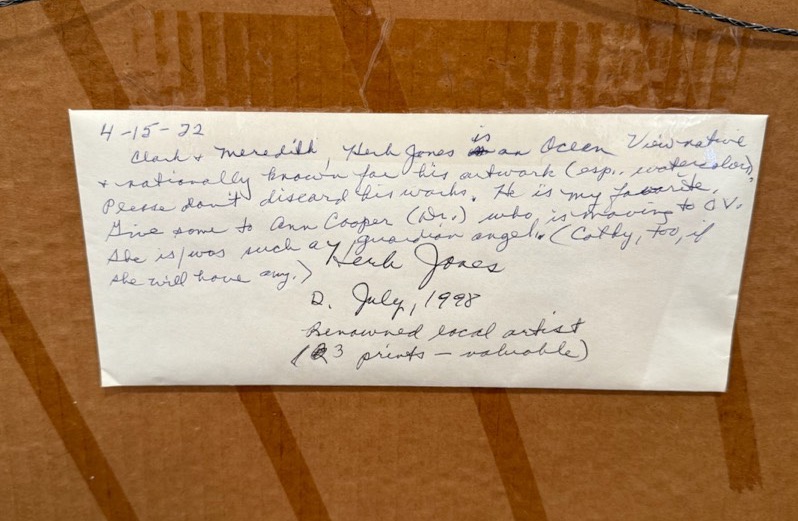 4-15-22
Clark + Meredith, Herb Jones is an Ocean View native
+ nationally known for his artwork (esp., watercolors).
Please don't discard his works. He is my favorite.
Give some to Ann Cooper (Dr.) who is moving to O V.
She is/was such a guardian angel. (Cathy, too, if
she will have any.)
Herb Jones
D. July, 1998
Renowned local artist
(3 prints – valuable)